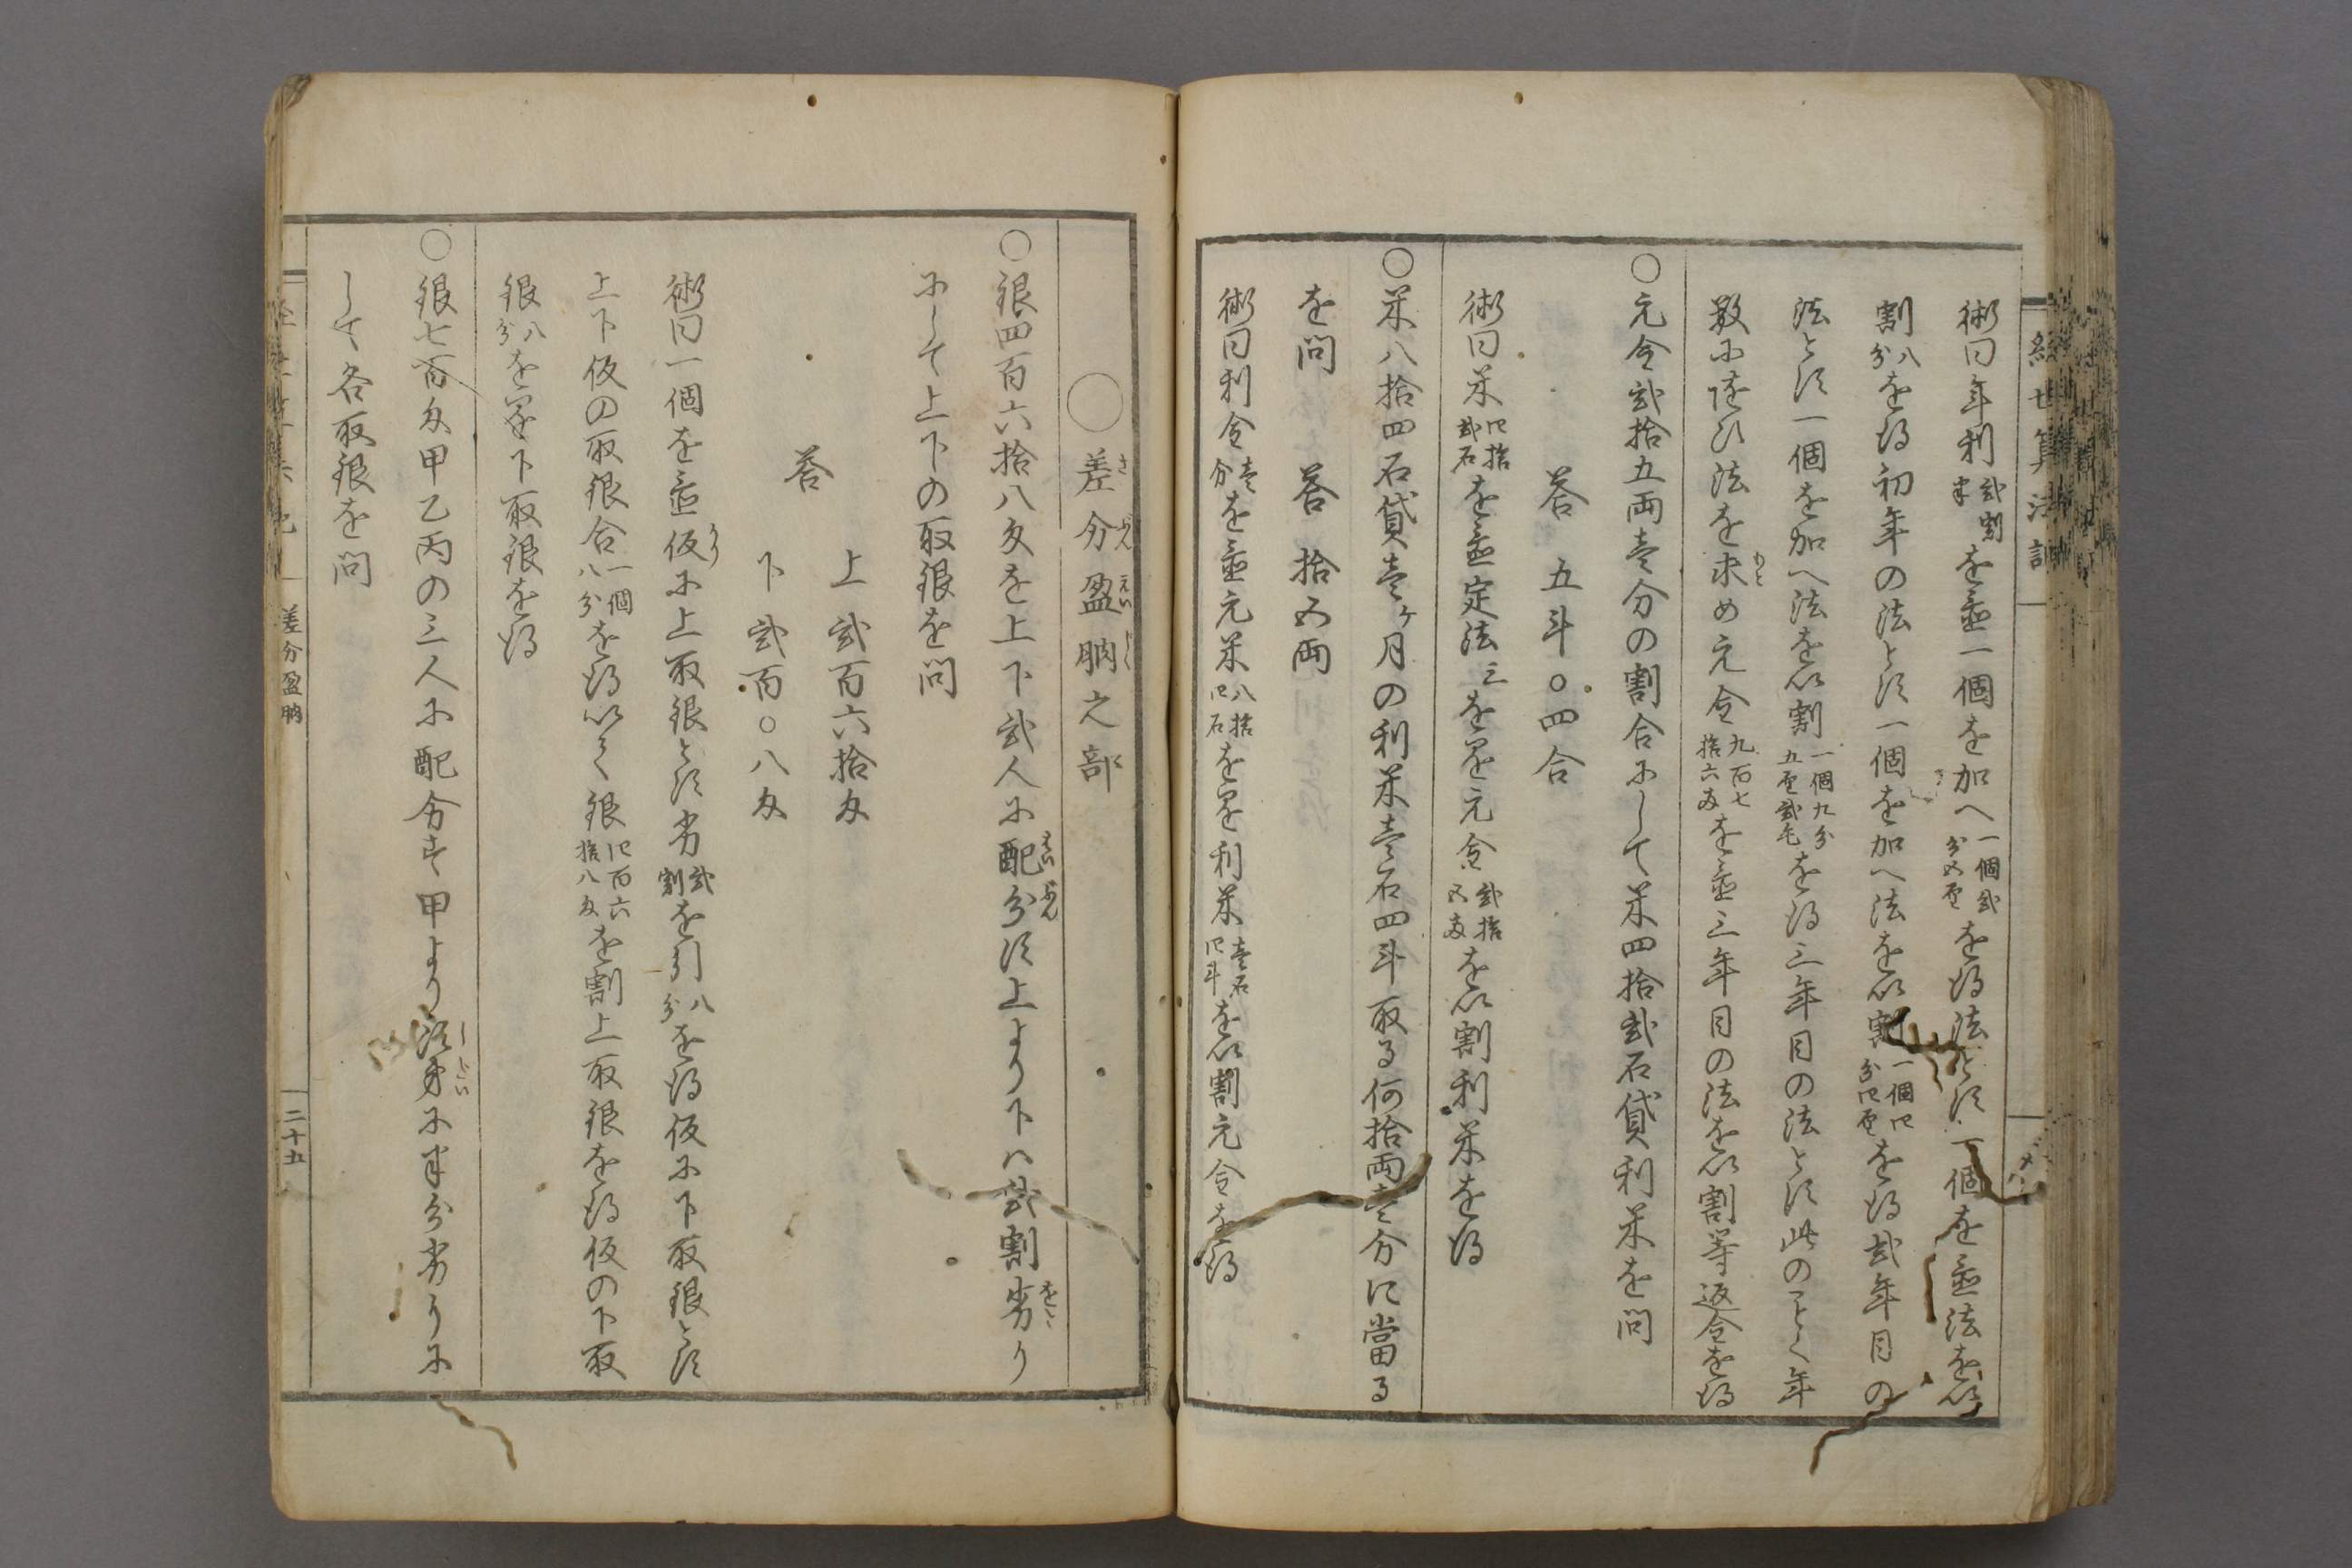 經世算法記
術曰年利弐割半を置一個を加へ一個弐分五厘を得法とす一個を置法を以
割八分を得初年の法とす一個を加へ法を以割一個四分四厘を得弐年目の
法とす一個を加へ法を以割一個九分五厘弐毛を得三年目の法とす此のことく年
数に随ひ法を求め元金九百七拾六両を置三年目の法を以割等返金を得
〇元金弐拾五両壱分の割合にして米四拾弐石貸利米を問
答 五斗〇四合
術曰米四拾弐石を置定法三を㒰元金弐拾五両を以割利米を得
〇米八拾四石貸壱ヶ月の利米壱石四斗取る何拾両壱分に當る
を問 答 拾五両
術曰利金壱分を置元米八拾四石を㒰利米壱石四斗を以割元金を得
〇差分盈朒之部
〇銀四百六拾八匁を上下弐人に配分す上より下ハ弐割劣り
にして上下の取銀を問
答 上弐百六拾匁
下弐百〇八匁
術曰一個を置仮に上取銀とす劣弐割を引八分を得仮に下取銀とす
上下仮の取銀合一個八分を得以て銀四百六拾八匁を割上取銀を得仮の下取
銀八分を㒰下取銀を得
〇銀七百匁甲乙丙の三人に配分す甲より次第に半分劣りに
して各取銀を問
差分盈朒
二十五